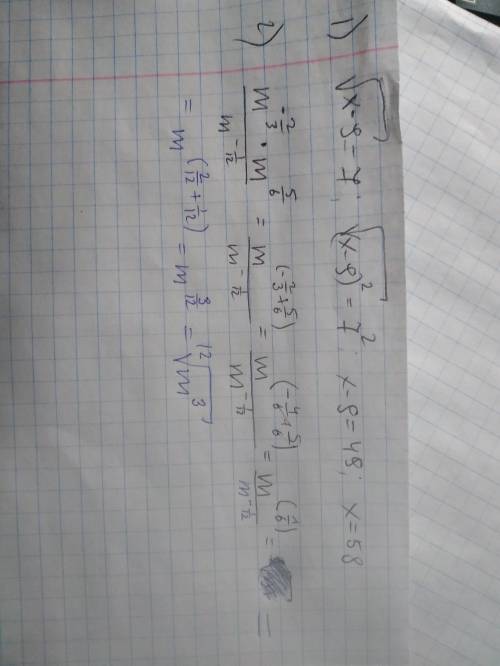 1) √x-9 = 7; √(x-9)² = 7²; x-9=48; x=58
2) m^(-2/3) · m^(5/6) / m^(-1/12) = m^(-2/3+5/6) / m^(-1/12) = m^(-4/6+5/6) / m^(-1/12) = m^(1/6) / m^(-1/12) = =
= m^(2/12+1/12) = m^(3/12) = ¹²√m³